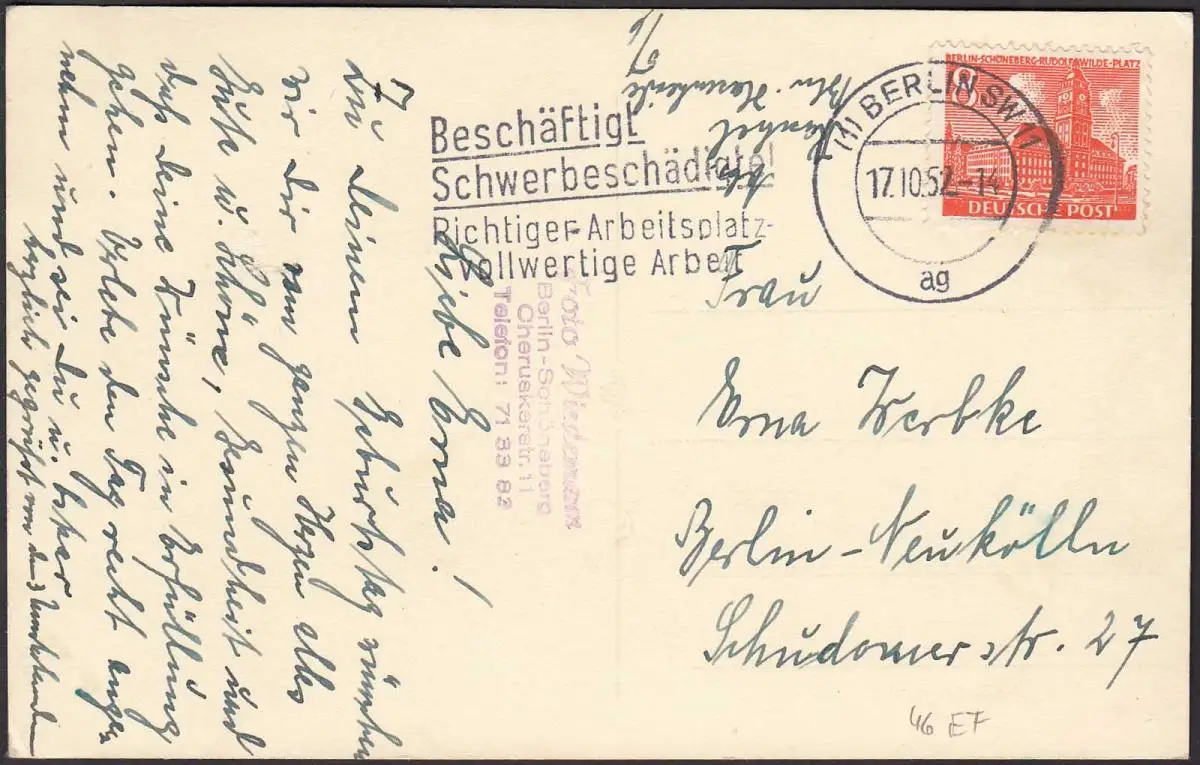 BERLIN-SCHÖNEBERG-RUDOLF WILDE-PLATZ
8
DEUTSCHE POST
(1) BERLIN SW 11
17.10.52.-14
ag
Beschäftigt
Schwerbeschädigte!
Richtiger Arbeitsplatz-
vollwertige Arbeit
Foto
Berlin-Schöneberg
Cheruskerstr. 11
Telefon: 71 83 82
Frau
Erna Werbke
Berlin-Neukölln
Schudomerstr. 27
Liebe Erna!
Zu Deinem Geburtstag wünschen
wir Dir vom ganzen Herzen alles
Gute u. Schöne, Gesundheit und
daß Deine Wünsche in Erfüllung
gehen. Verlebe den Tag recht ange-
nehm und sei Du u.
herzlich gegrüßt von den 3
46 EF